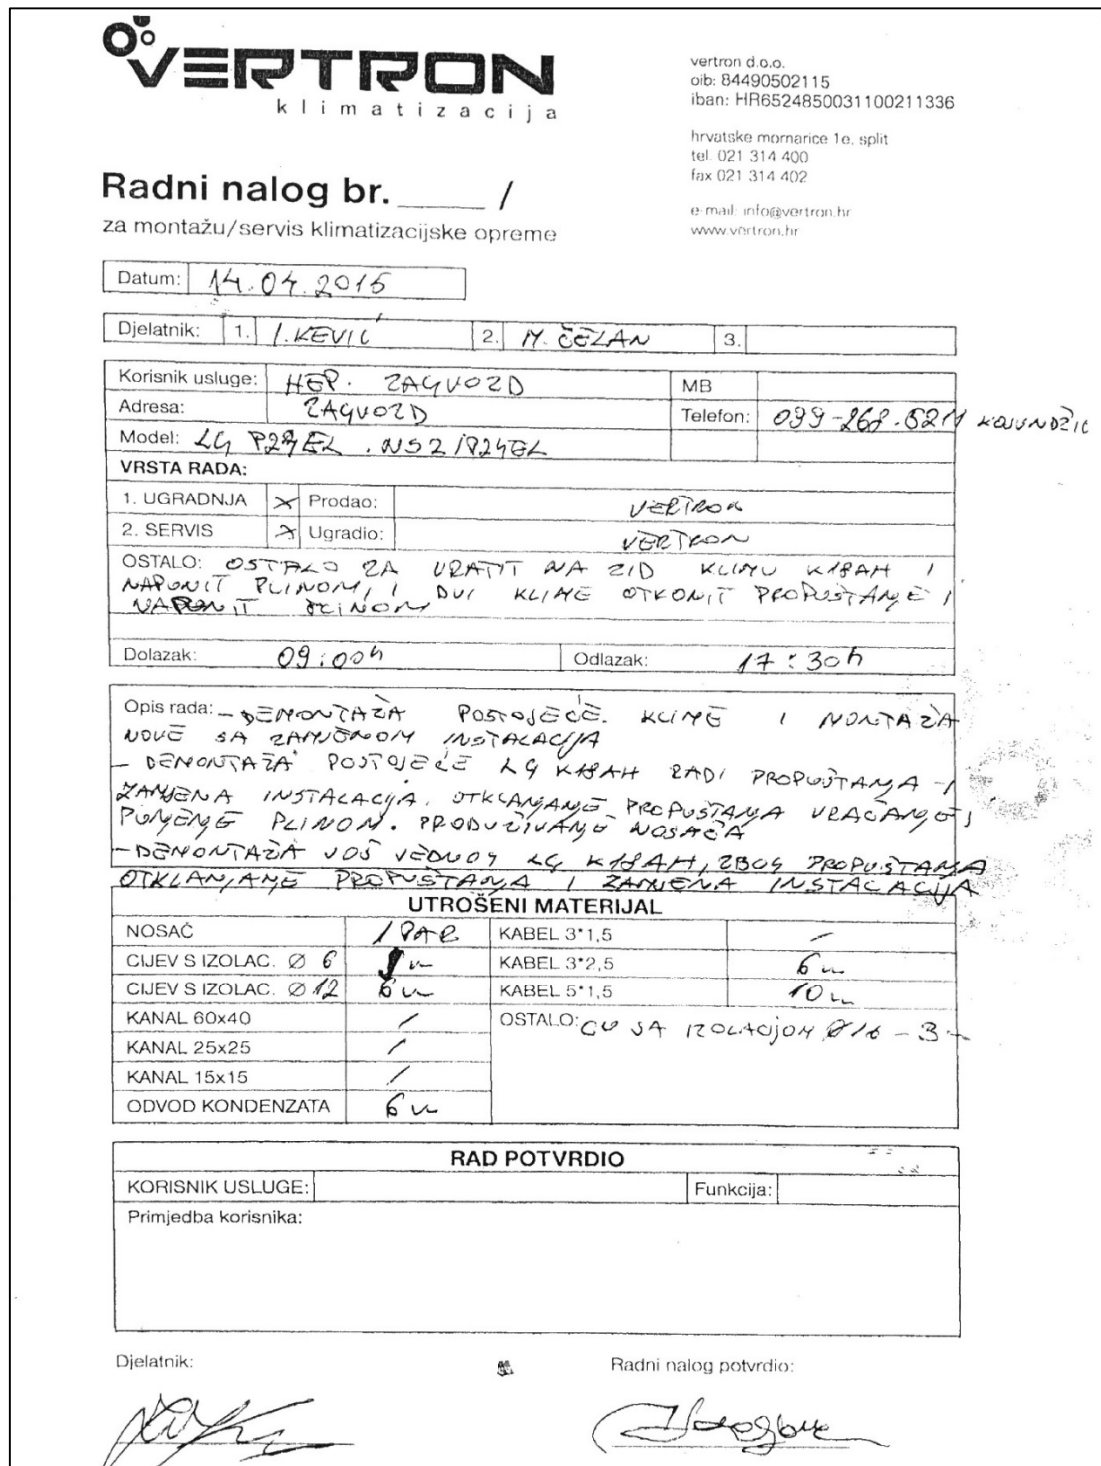 VERTRON
klimatizacija
vertron d.o.o.
oib: 84490502115
iban: HR6524850031100211336
hrvatske mornarice 1e, split
tel. 021 314 400
fax 021 314 402
e-mail: info@vertron.hr
www.vertron.hr
Radni nalog br. _____ /
za montažu/servis klimatizacijske opreme
Datum: 14.04.2015
Djelatnik: 1. I. KEVIĆ 2. M. ČELAN 3.
Korisnik usluge: HEP. ZAGVOZD MB
Adresa: ZAGVOZD Telefon: KOJUNDŽIĆ
Model: LG P24EL .NS2 / P24EL
VRSTA RADA:
1. UGRADNJA X Prodao: VERTRON
2. SERVIS X Ugradio: VERTRON
OSTALO: OSTALO ZA VRATIT NA ZID KLIMU K18AH I
NAPUNIT PLINOM, I DVI KLIME OTKONIT PROPUŠTANJE I
NAPUNIT PLINOM
Dolazak: 09:00h Odlazak: 17:30h
Opis rada: - DEMONTAŽA POSTOJEĆE. KLIME I MONTAŽA
NOVE SA ZAMJENOM INSTALACIJA
- DEMONTAŽA POSTOJEĆE LG K18AH RADI PROPUŠTANJA - I
ZAMJENA INSTALACIJA. OTKLANJANJE PROPUŠTANJA VRAĆANJE I
PUNJENJE PLINOM. PRODUŽIVANJE NOSAČA
- DEMONTAŽA JOŠ JEDNOG LG K18AH, ZBOG PROPUŠTANJA
OTKLANJANJE PROPUŠTANJA I ZAMJENA INSTALACIJA
UTROŠENI MATERIJAL
NOSAČ 1 PAR KABEL 3*1,5 /
CIJEV S IZOLAC. Ø 6 m KABEL 3*2,5 6 m
CIJEV S IZOLAC. Ø 12 6 m KABEL 5*1,5 10 m
KANAL 60x40 / OSTALO: CU SA IZOLACIJOM Ø16 - 3 -
KANAL 25x25 /
KANAL 15x15 /
ODVOD KONDENZATA 6 m
RAD POTVRDIO
KORISNIK USLUGE: Funkcija:
Primjedba korisnika:
Djelatnik: Radni nalog potvrdio: